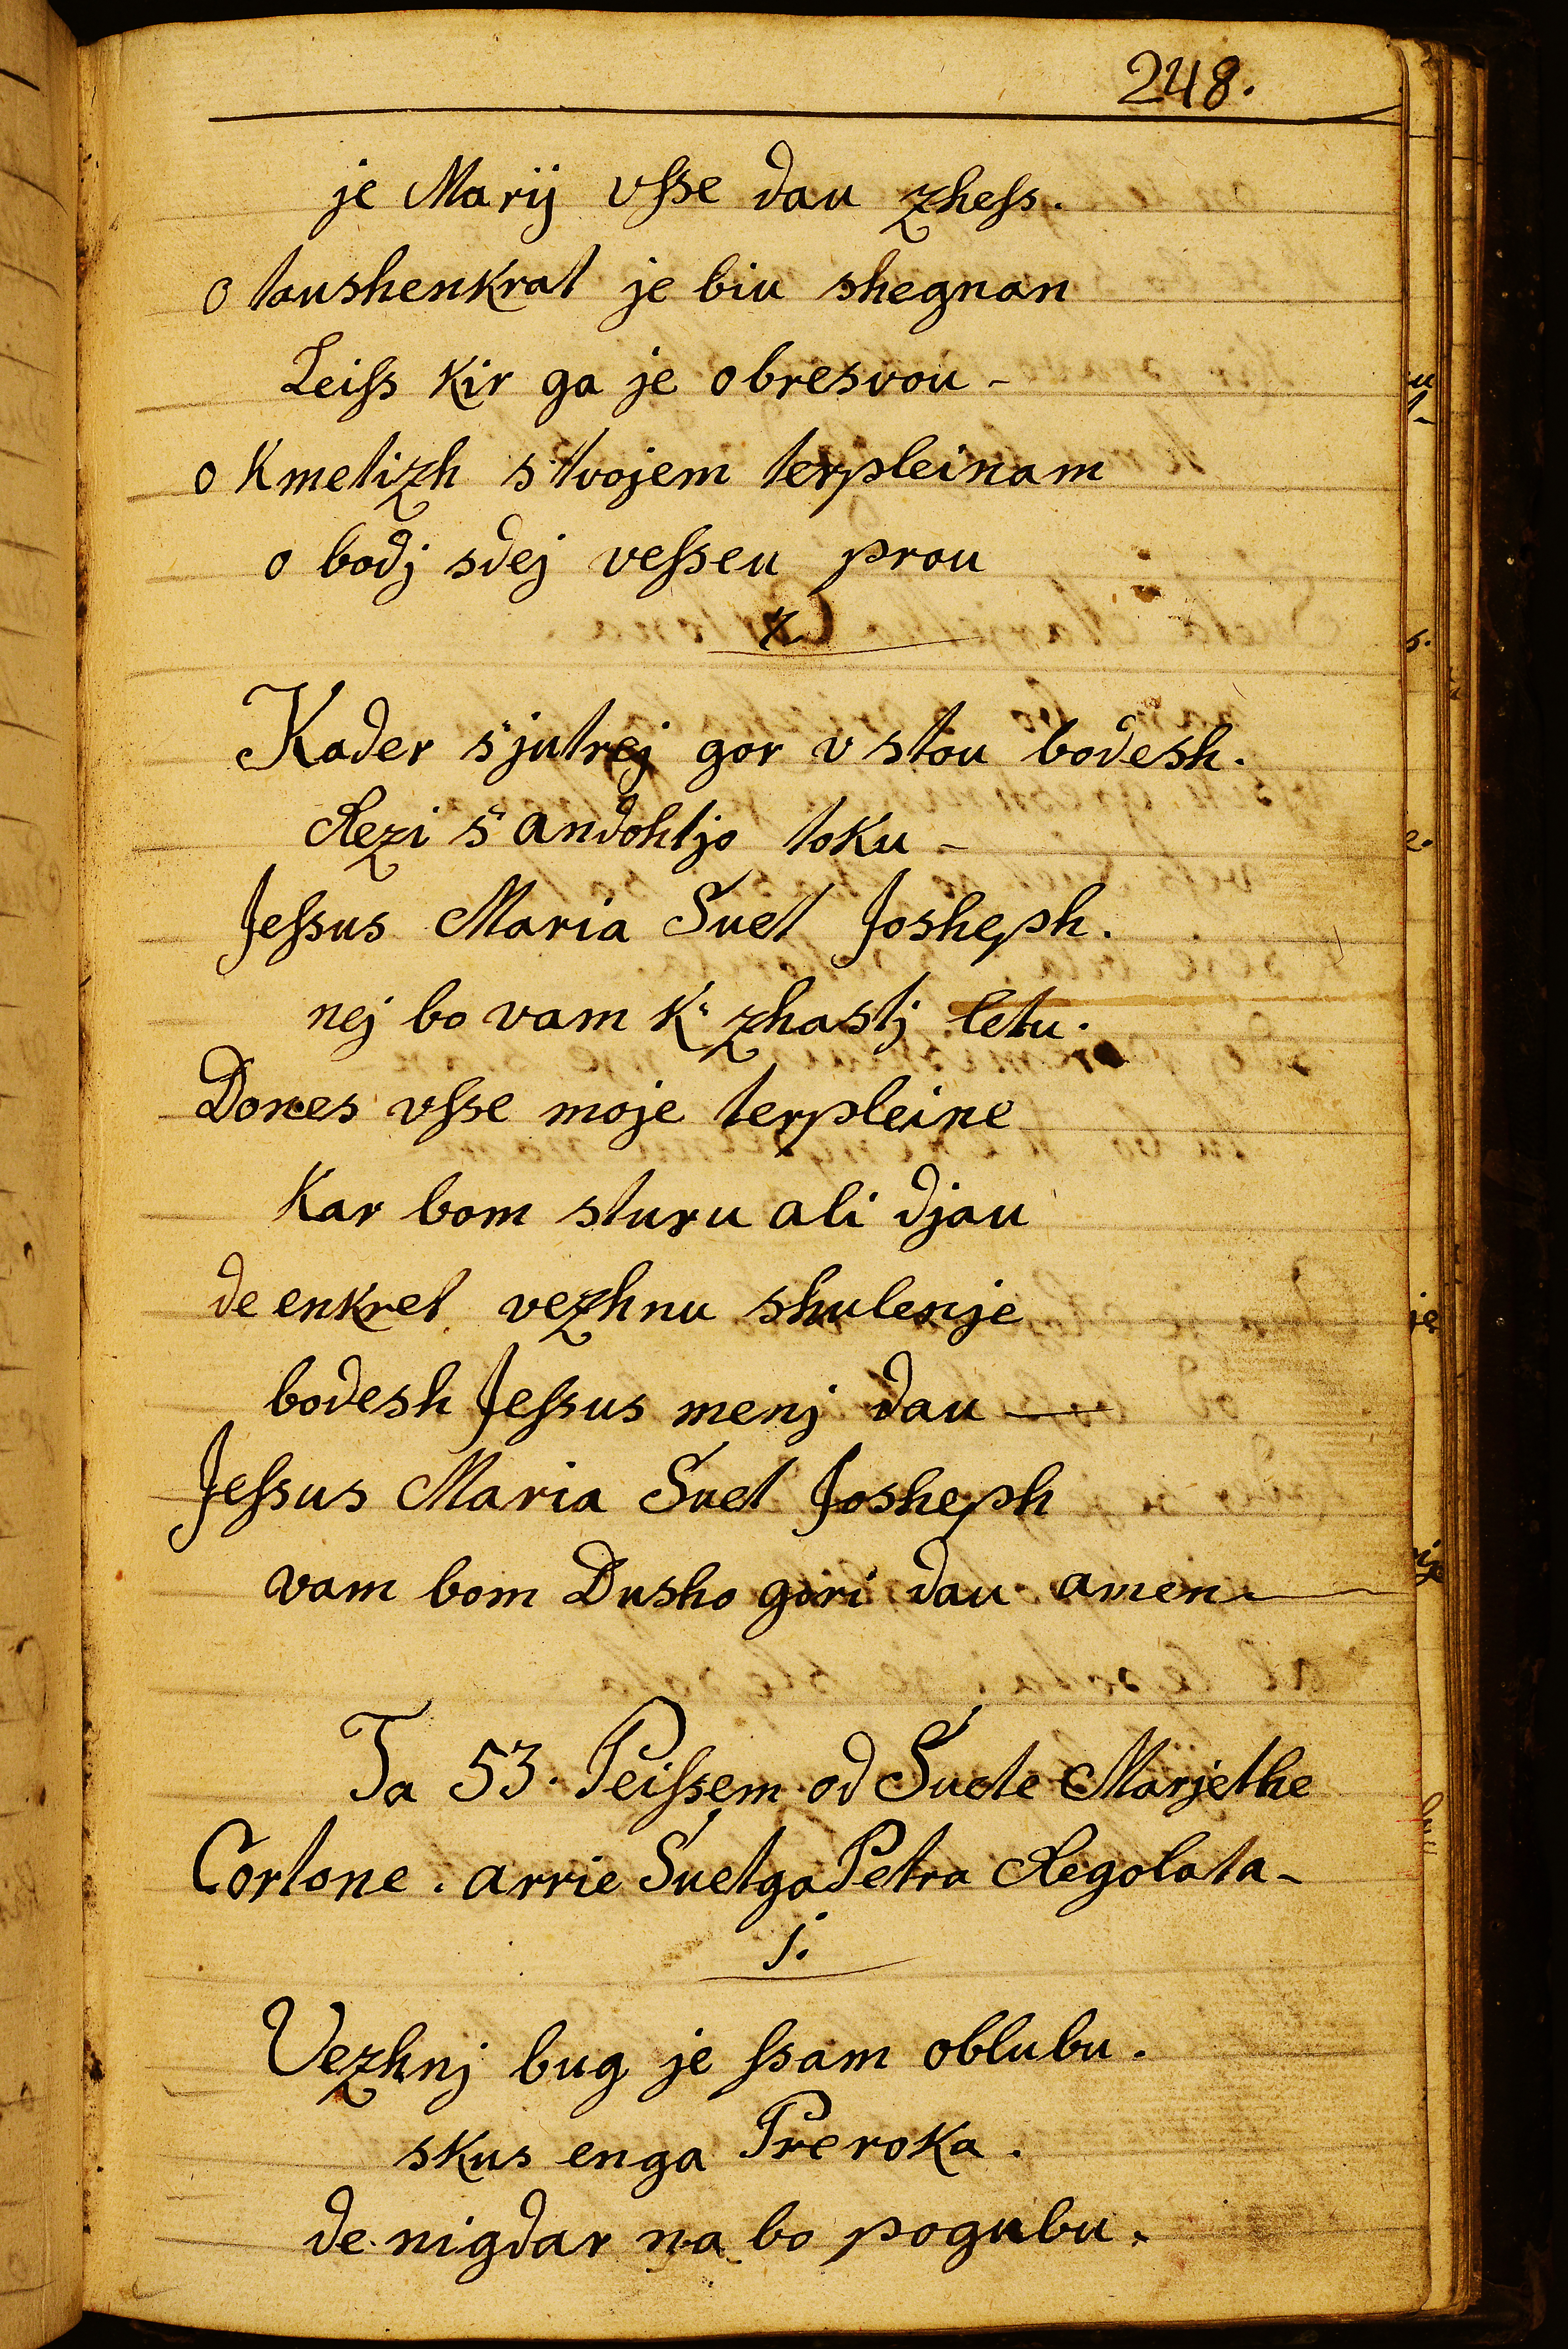 248.
je Marij vsse dau zhess.
o taushenkrat je biu shegnan
Leiss kir ga je obresvou -
o Kmetizh s'tvojem terpleinam
o bodj sdej vesseu prou
x.
Kader s'jutrej gor vstou bodesh.
Rezi s'andohtjo toku -
Jessus Maria Suet Josheph.
nej bo vam k' zhastj letu.
Dones vsse moje terpleine
Kar bom sturu ali djau
de enkret vezhnu shulenje
bodesh Jessus menj dau —
Jessus Maria Suet Josheph
vam bom Dusho gori dau amen.
Ta 53. Peissem od Suete Marjethe
Cortone. arrie Suetga Petra Regolata -
j.
Vezhnj bug je ssam oblubu.
skus enga Preroka.
de nigdar na bo pogubu.